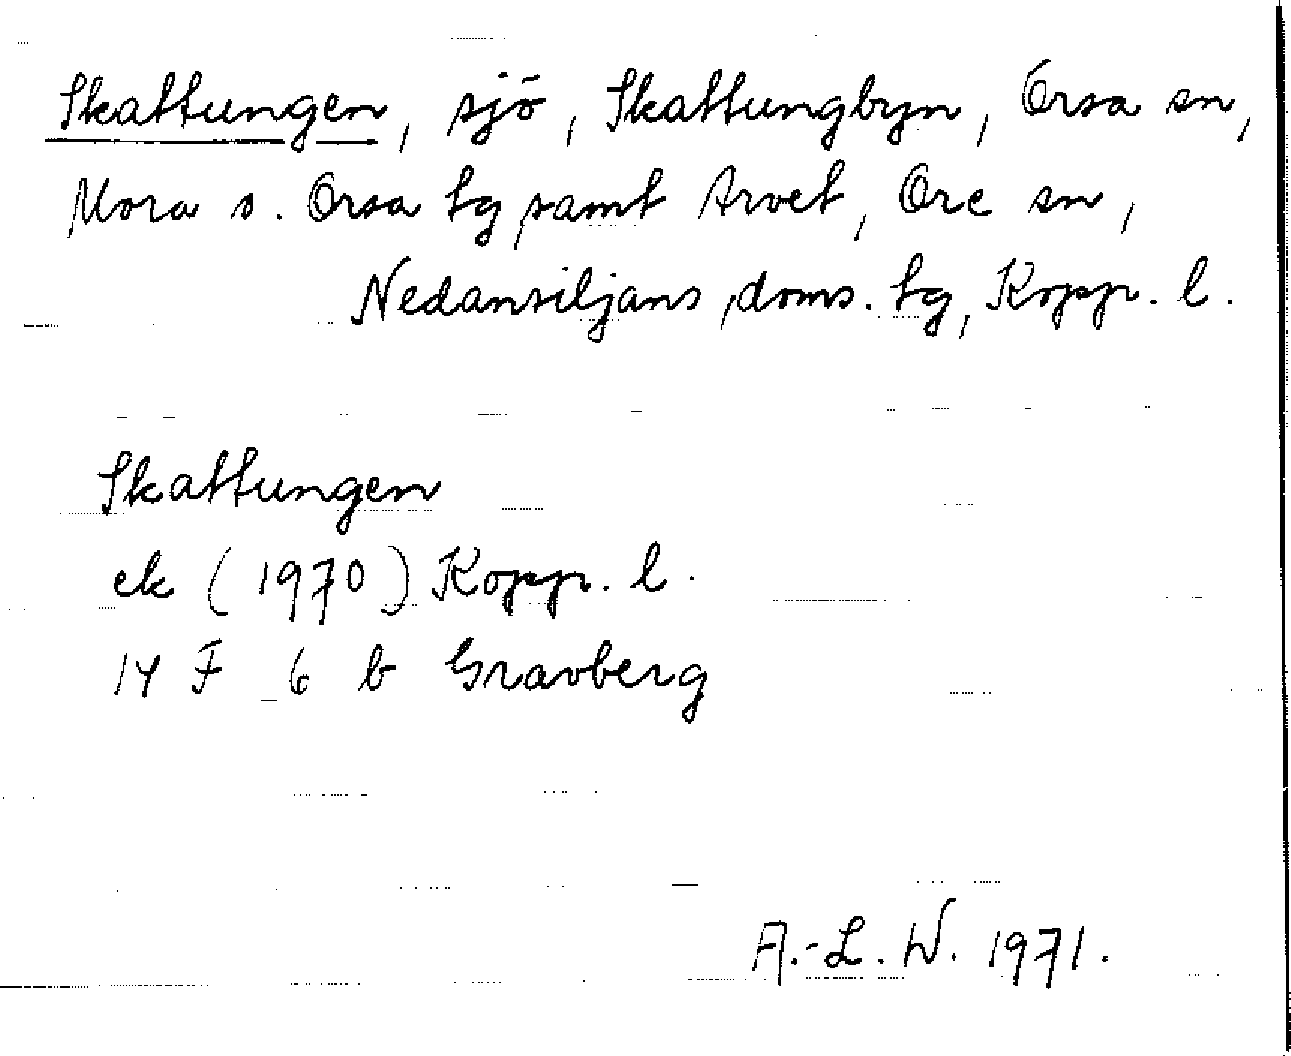 Skattungen, sjö, Skattungbyn, Orsa sn,
Mora o. Orsa tg samt Arvet, Ore sn,
Nedansiljans doms. tg, Kopp. l.
Skattungen
ek (1970) Kopp. l.
14 F 6 b Gravberg
A.-L. W. 1971.